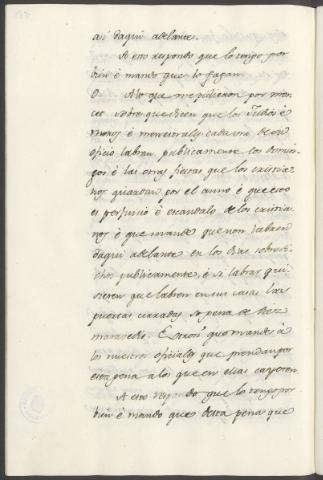 asi daqui adelante.
A esto respondo que lo tengo por
bien é mando que lo fagan
O A lo que me pidieron por mer
ced sobre que dicen que los Judios é
moros é menestrales cada uno de su
oficio labran publicamente los domin
gos é las otras fiestas que los cristia
nos guardan por el anno é que esto
es perjuicio é escandalo de los cristia
nos é que mande que non labren
daqui adelante en los dias sobredi
chos publicamente, é si labrar qui
sieren que labren en sus casas las
puertas cerradas so pena de diez
maravedis. E otrosi que mande á
los nuestros oficiales que prendan por
esta pena a los que en ellas cayeren.
A esto respondo que lo tengo por
bien é mando que desta pena que